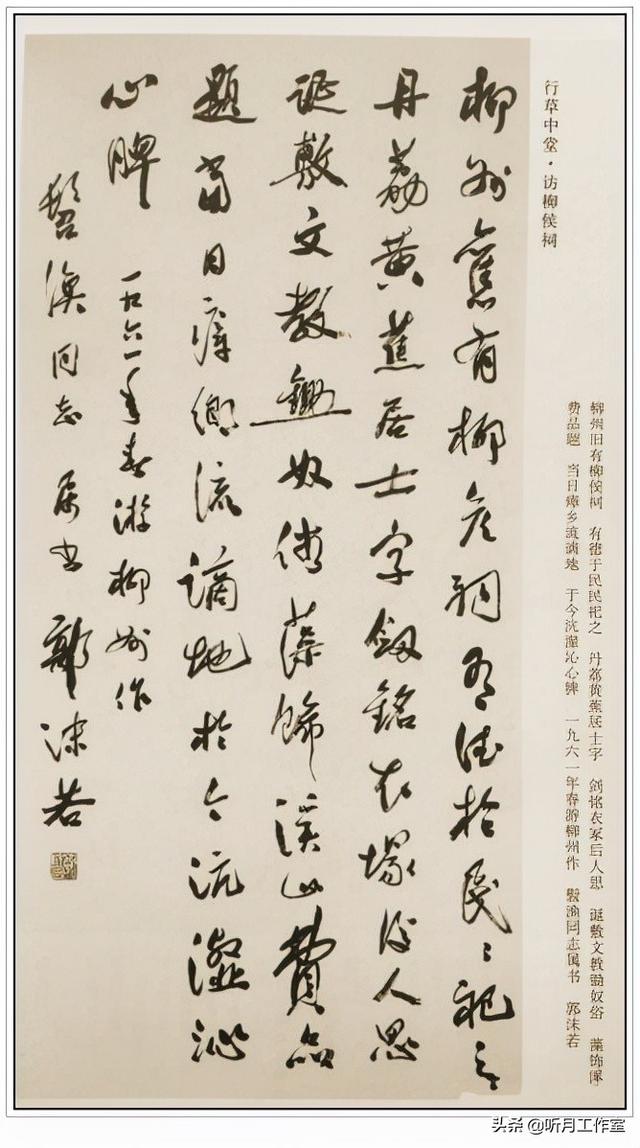 行草中堂·访柳侯祠
柳州旧有柳侯祠 有德于民民祀之 丹荔黄蕉居士字 剑铭衣冢后人思 诞敷文教锄奴俗 藻饰
费品题 当日瘴乡流谪地 于今沆瀣沁心脾 一九六一年春游柳州作 同志属书 郭沫若
柳州舊有柳侯祠有德於民〻祀之
丹荔黄蕉居士字劔銘衣塚後人思
誕敷文教鋤奴俗藻飾溪山費品
題當日瘴鄉流謫地於今沆瀣沁
心脾 一九六一年春游柳州作
同志属书 郭沫若
头条 @听月工作室